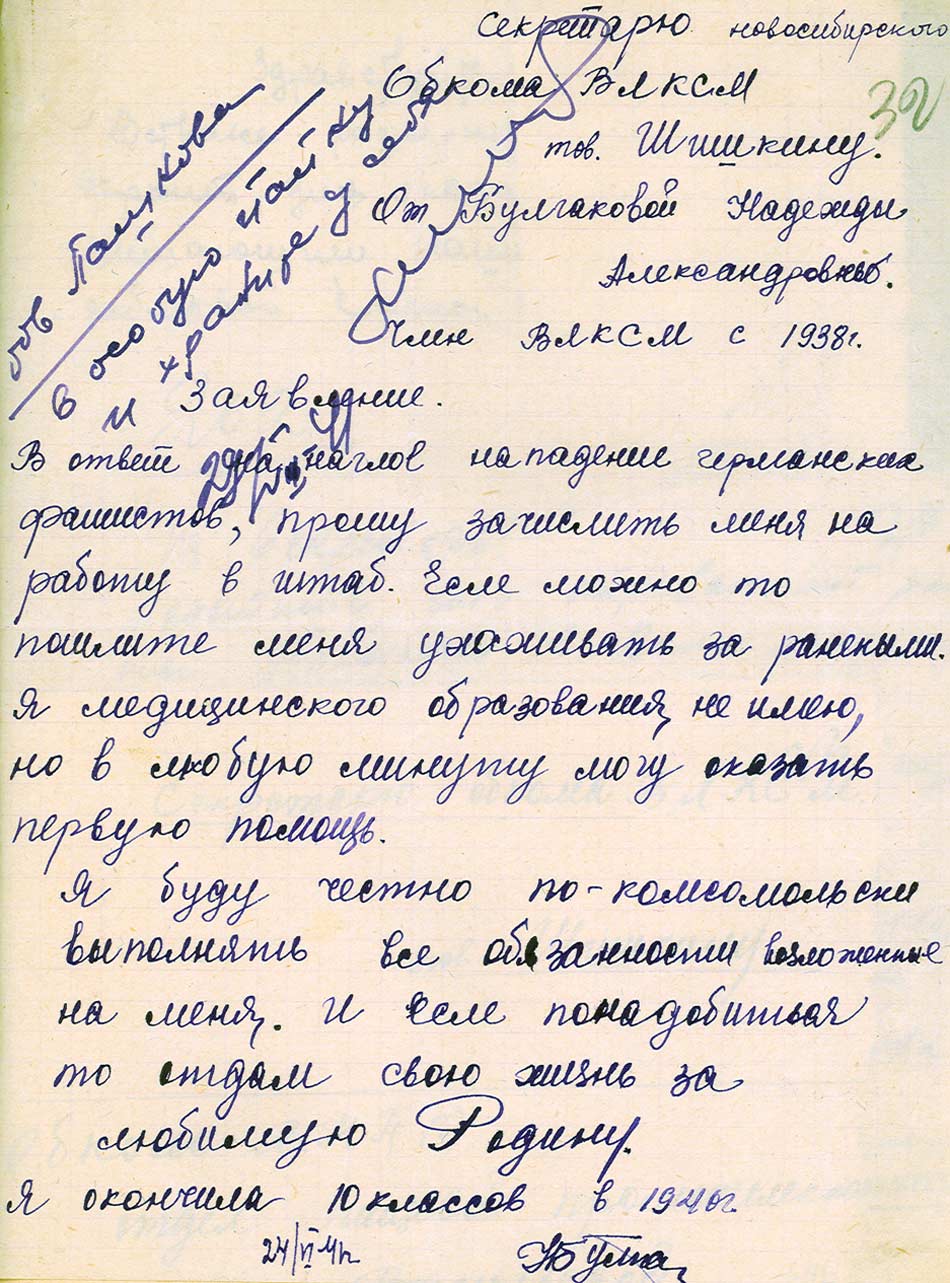 Секретарю новосибирского
Обкома ВЛКСМ
32
тов. Шишкину.
От Булгаковой Надежды
Александровны.
Член ВЛКСМ с 1938г.
в особую папку
и храните у себя
Заявление.
В ответ на наглое нападение германских
фашистов, прошу зачислить меня на
работу в штаб. Если можно то
пошлите меня ухаживать за ранеными.
Я медицинского образования, не имею,
но в любую минуту могу оказать
первую помощь.
Я буду честно по-комсомольски
выполнять все обязанности возложенные
на меня. И если понадобиться
то отдам свою жизнь за
любимую Родину.
Я окончила 10 классов в 1940г.
24/VI 41г.